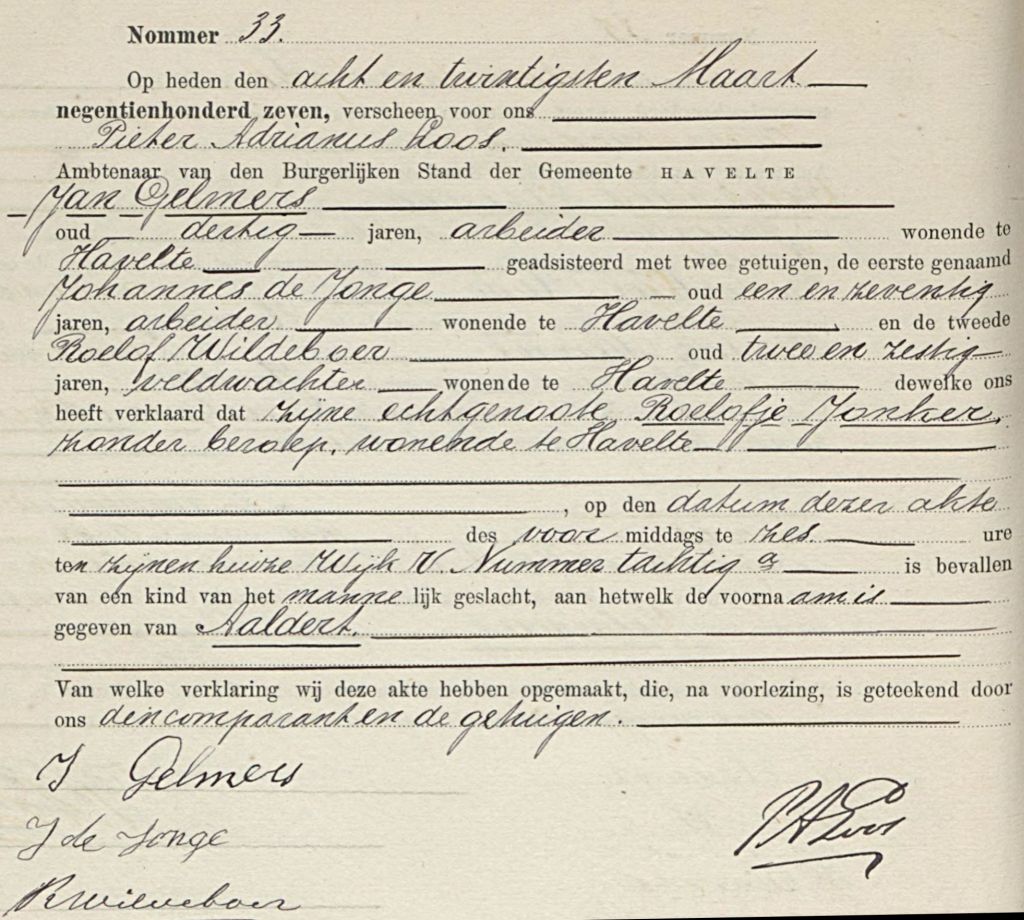 Nommer 33.
Op heden den acht en twintigsten Maart
negentienhonderd zeven, verscheen voor ons
Pieter Adrianus Loos,
Ambtenaar van den Burgerlijken Stand der Gemeente HAVELTE
Jan Gelmers
oud dertig jaren, arbeider wonende te
Havelte geadsisteerd met twee getuigen, de eerste genaamd
Johannes de Jonge oud een en zeventig
jaren, arbeider wonende te Havelte en de tweede
Roelof Wildeboer oud twee en zestig
jaren, veldwachter wonende te Havelte dewelke ons
heeft verklaard dat zijne echtgenoote Roelofje Jonker,
zonder beroep, wonende te Havelte
, op den datum dezer akte
des voor middags te zes ure
ten zijnen huize Wijk V. Nummer tachtig a is bevallen
van een kind van het manne lijk geslacht, aan hetwelk de voorna am is
gegeven van Aaldert.
Van welke verklaring wij deze akte hebben opgemaakt, die, na voorlezing, is geteekend door
ons den comparant en de getuigen.
J Gelmers
PALoos
J de Jonge
R Wildeboer